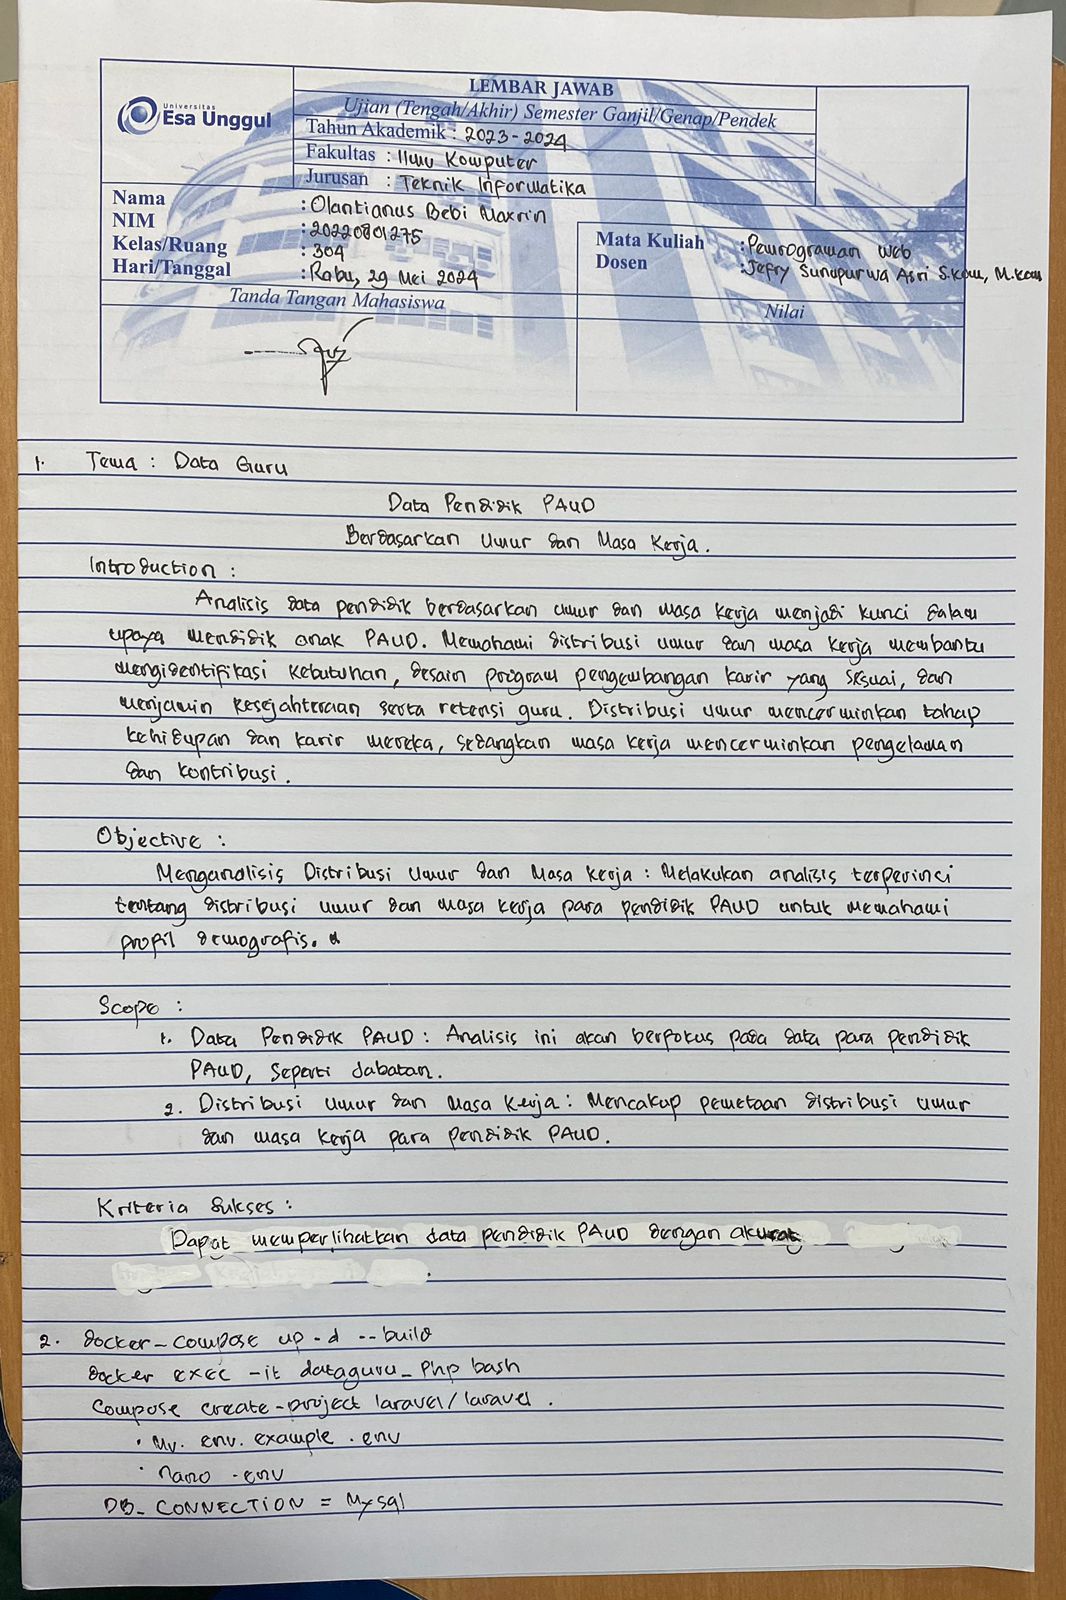 LEMBAR JAWAB
Universitas
Esa Unggul
Ujian (Tengah/Akhir) Semester Ganjil/Genap/Pendek
Tahun Akademik : 2023-2024
Fakultas : Ilmu Komputer
Jurusan : Teknik Informatika
Nama : Olantianus Bebi Maxrin
NIM : 20220801275
Kelas/Ruang : 304
Hari/Tanggal : Rabu, 29 Mei 2024
Mata Kuliah : Pemrograman Web
Dosen : Jefry Sunupurwa Asri S.Kom, M.Kom
Tanda Tangan Mahasiswa
Nilai
1. Tema : Data Guru
Data Pendidik PAUD
Berdasarkan Umur dan Masa Kerja.
Introduction :
Analisis data pendidik berdasarkan umur dan masa kerja menjadi kunci dalam
upaya mendidik anak PAUD. Memahami distribusi umur dan masa kerja membantu
mengidentifikasi kebutuhan, desain program pengembangan karir yang sesuai, dan
menjamin kesejahteraan serta retensi guru. Distribusi umur mencerminkan tahap
kehidupan dan karir mereka, sedangkan masa kerja mencerminkan pengalaman
dan kontribusi.
Objective :
Menganalisis Distribusi Umur dan Masa Kerja : Melakukan analisis terperinci
tentang distribusi umur dan masa kerja para pendidik PAUD untuk memahami
profil demografis.
Scope :
1. Data Pendidik PAUD : Analisis ini akan berfokus pada data para pendidik
PAUD, Seperti Jabatan.
2. Distribusi Umur dan Masa Kerja : Mencakup pemetaan distribusi umur
dan masa kerja para pendidik PAUD.
Kriteria Sukses :
Dapat memperlihatkan data pendidik PAUD dengan akurat
2. docker-compose up -d --build
docker exec -it dataguru_php bash
Compose create-project laravel/laravel .
• Mv. env. example . env
• nano .env
DB_CONNECTION = Mysql